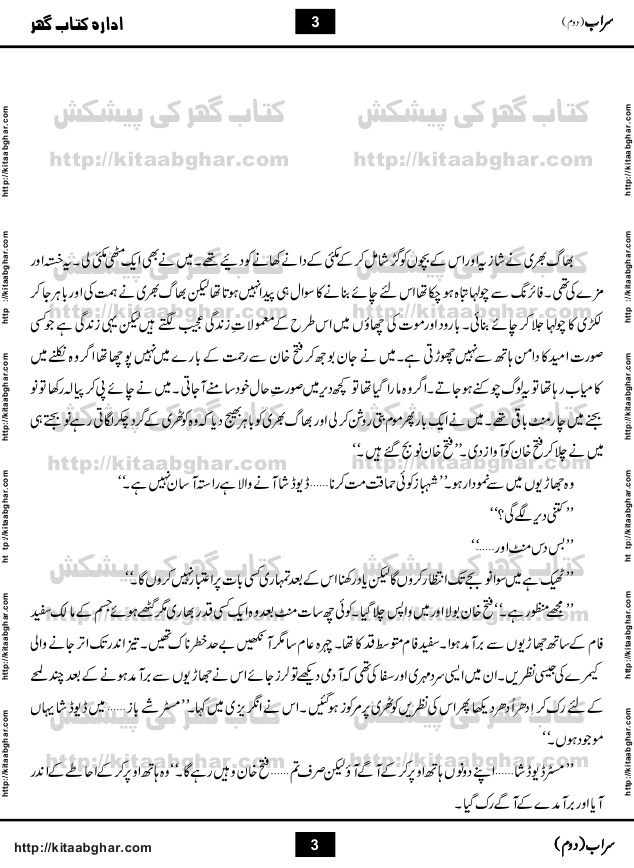 سراب (دوم)
3
ادارہ کتاب گھر
کتاب گھر کی پیشکش کتاب گھر کی پیشکش
http://kitaabghar.com http://kitaabghar.com
بھاگ بھری نے شازیہ اور اس کے بچوں کو گڑ شامل کر کے مکئی کے دانے کھانے کو دیئے تھے۔ میں نے بھی ایک مٹھی مکئی لی۔ یہ خستہ اور
مزے کی تھی۔ فائرنگ سے چولہا تباہ ہو چکا تھا اس لئے چائے بنانے کا سوال ہی پیدا نہیں ہوتا تھا لیکن بھاگ بھری نے ہمت کی اور باہر جا کر
لکڑی کا چولہا جلا کر چائے بنائی۔ بارود اور موت کی چھاؤں میں اس طرح کے معمولاتِ زندگی عجیب لگتے ہیں لیکن یہی زندگی ہے جو کسی
صورت امید کا دامن ہاتھ سے نہیں چھوڑتی ہے۔ میں نے جان بوجھ کر فتح خان سے رحمت کے بارے میں نہیں پوچھا تھا اگر وہ نکلنے میں
کامیاب رہا تھا تو یہ لوگ چوکنے ہو جاتے۔ اگر وہ مارا گیا تھا تو کچھ دیر میں صورتِ حال خود سامنے آ جاتی۔ میں نے چائے پی کر پیالہ رکھا تو نو
بجنے میں چار منٹ باقی تھے۔ میں نے ایک بار پھر موم بتی روشن کر لی اور بھاگ بھری کو باہر بھیج دیا کہ وہ کوٹھری کے گرد چکر لگاتی رہے نو بجتے ہی
میں نے چلا کر فتح خان کو آواز دی۔ ”فتح خان نو بج گئے ہیں۔“
وہ جھاڑیوں میں سے نمودار ہو۔ ”شہباز کوئی حماقت مت کرنا...... ڈیوڈ شا آنے والا ہے راستہ آسان نہیں ہے۔“
”کتنی دیر لگے گی؟“
”بس دس منٹ اور......“
”ٹھیک ہے میں سوا نو بجے تک انتظار کروں گا لیکن یاد رکھنا اس کے بعد تمہاری کسی بات پر اعتبار نہیں کروں گا۔“
”مجھے منظور ہے۔“ فتح خان بولا اور میں واپس چلا گیا۔ کوئی چھ سات منٹ بعد وہ ایک کسی قدر بھاری مگر گٹھے ہوئے جسم کے مالک سفید
فام کے ساتھ جھاڑیوں سے برآمد ہوا۔ سفید فام متوسط قد کا تھا۔ چہرہ عام سا مگر آنکھیں بے حد خطرناک تھیں۔ تیز اندر تک اتر جانے والی
کیمرے کی جیسی نظریں۔ ان میں ایسی سرد مہری اور سفاکی تھی کہ آدمی دیکھے تو لرز جائے اس نے جھاڑیوں سے برآمد ہونے کے بعد چند لمحے
کے لئے رک کر ادھر اُدھر دیکھا پھر اس کی نظریں کوٹھری پر مرکوز ہو گئیں۔ اس نے انگریزی میں کہا۔ ”مسٹر شے باز...... میں ڈیوڈ شا یہاں
موجود ہوں۔“
”مسٹر ڈیوڈ شا...... اپنے دونوں ہاتھ اوپر کر کے آگے آؤ لیکن صرف تم...... فتح خان وہیں رہے گا۔“ وہ ہاتھ اوپر کر کے احاطے کے اندر
آیا اور برآمدے کے آگے رک گیا۔
http://kitaabghar.com
3
سراب (دوم)